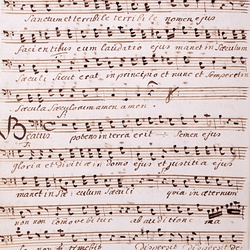 Sanctum et terribile terribile nomen ejus
facientibus eum Laudatio ejus manet in Sæculum
Sæculi Sicut erat in principio et nunc et Semper et in
Sæcula Sæculorum amen amen.
Beatus. potens in terra erit Semen ejus
gloria et Divitiæ in domo ejus et justitia ejus
manet in Sæculum Sæculi quia in æternum
non non Comovebitur ab auditione ma
non timebit Dispersit